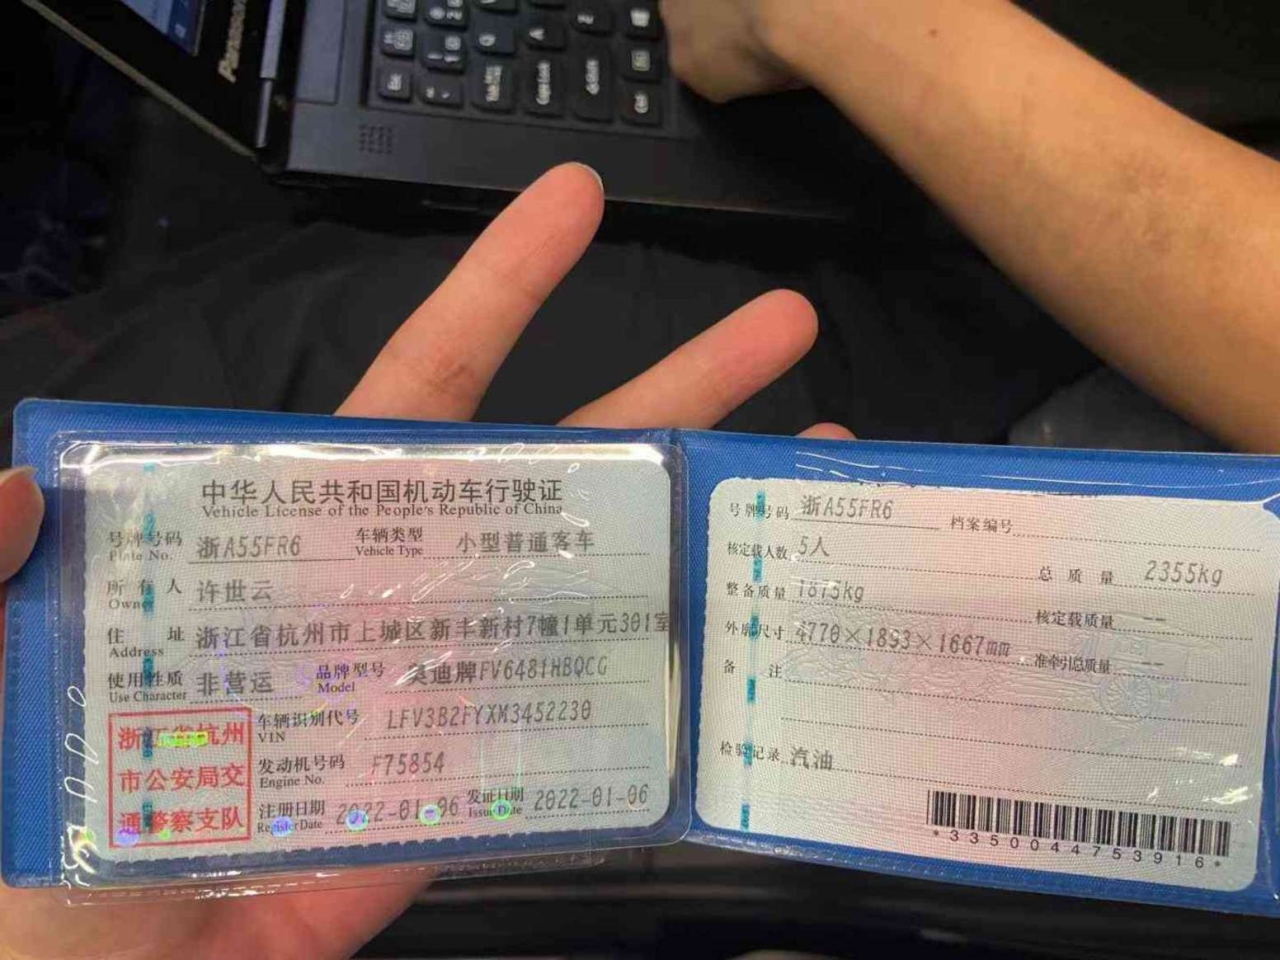 Panasonic
中华人民共和国机动车行驶证
Vehicle License of the People's Republic of China
号牌号码 浙A55FR6 车辆类型 小型普通客车
Plate No. Vehicle Type
所有人 许世云
Owner
住址 浙江省杭州市上城区新丰新村7幢1单元301室
Address
使用性质 非营运 品牌型号 奥迪牌FV6481HBQCG
Use Character Model
浙江省杭州
市公安局交
通警察支队
车辆识别代号 LFV3B2FYXM3452230
VIN
发动机号码 F75854
Engine No.
注册日期 2022-01-06 发证日期 2022-01-06
Register Date Issue Date
号牌号码 浙A55FR6 档案编号
核定载人数 5人 总质量 2355kg
整备质量 1875kg 核定载质量 --
外廓尺寸 4770×1893×1667mm 准牵引总质量 --
备注
检验记录 汽油
*3350044753916*